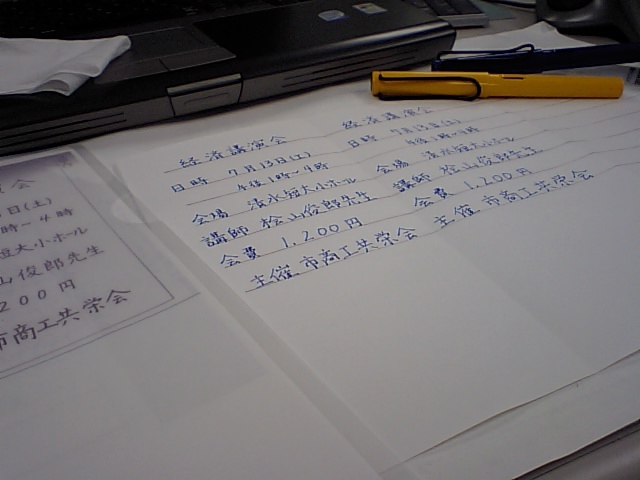 会
日(土)
時～4時
短大小ホール
山俊郎先生
200円
市商工共栄会
経済講演会
日時 7月13日(土)
午後1時～4時
会場 清水短大小ホール
講師 桧山俊郎先生
会費 1,200円
主催 市商工共栄会
経済講演会
日時 7月13日(土)
午後1時～4時
会場 清水短大小ホール
講師 桧山俊郎先生
会費 1,200円
主催 市商工共栄会